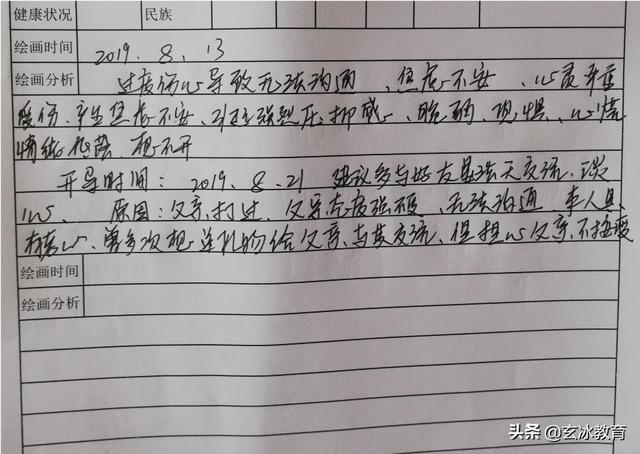 健康状况 民族
绘画时间 2019.8.13
绘画分析 过度伤心导致无法沟通、焦虑不安、心灵严重
受伤、产生焦虑不安、引起强烈压抑感、脆弱、恐惧、心慌
情绪低落、想不开
开导时间：2019.8.21 建议多与好友聊天交流、谈
心、原因：父亲打过、父亲态度强硬、无法沟通 本人具
有爱心、曾多次想送礼物给父亲、与其交流、但担心父亲不接受
绘画时间
绘画分析
头条 @玄冰教育